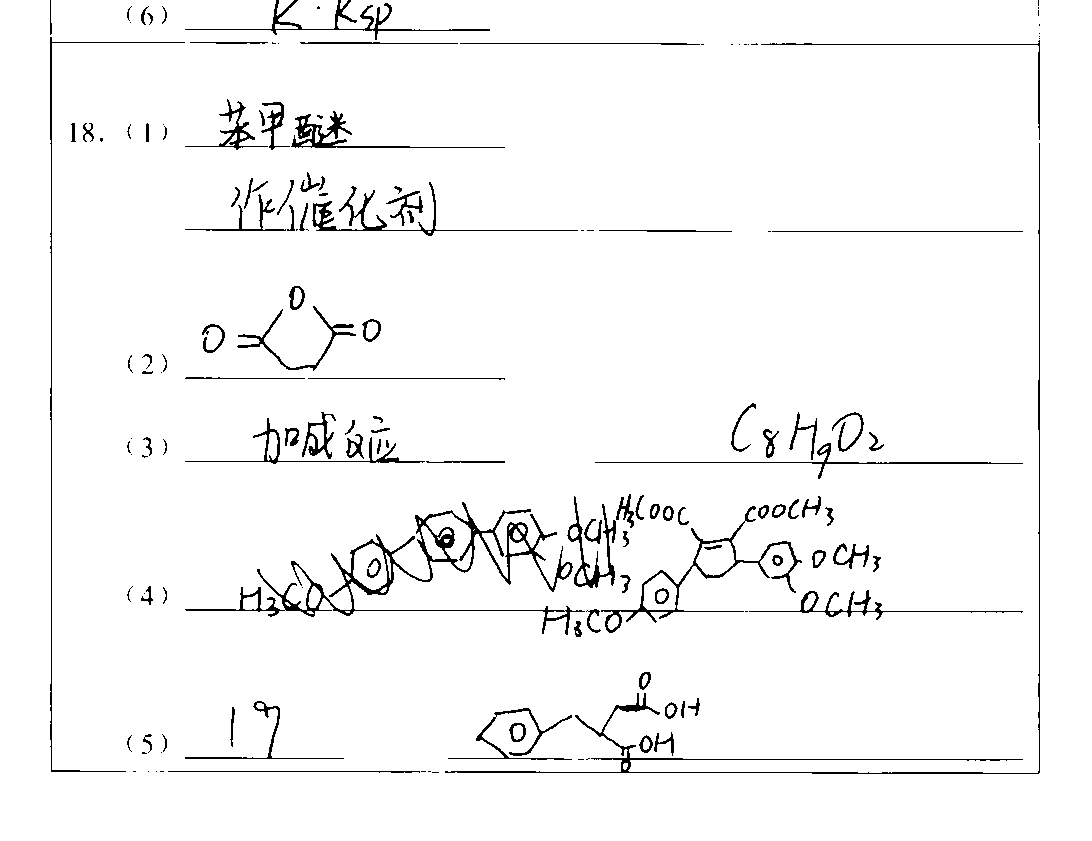 (6) K·Ksp
18. (1) 苯甲醚
作催化剂
O
(2) O= =O
(3) 加成反应 C8H9O2
H3COOC COOCH3
OCH3 OCH3
OCH3
(4) H3CO OCH3
H3CO
O
OH
(5) 17 OH
O